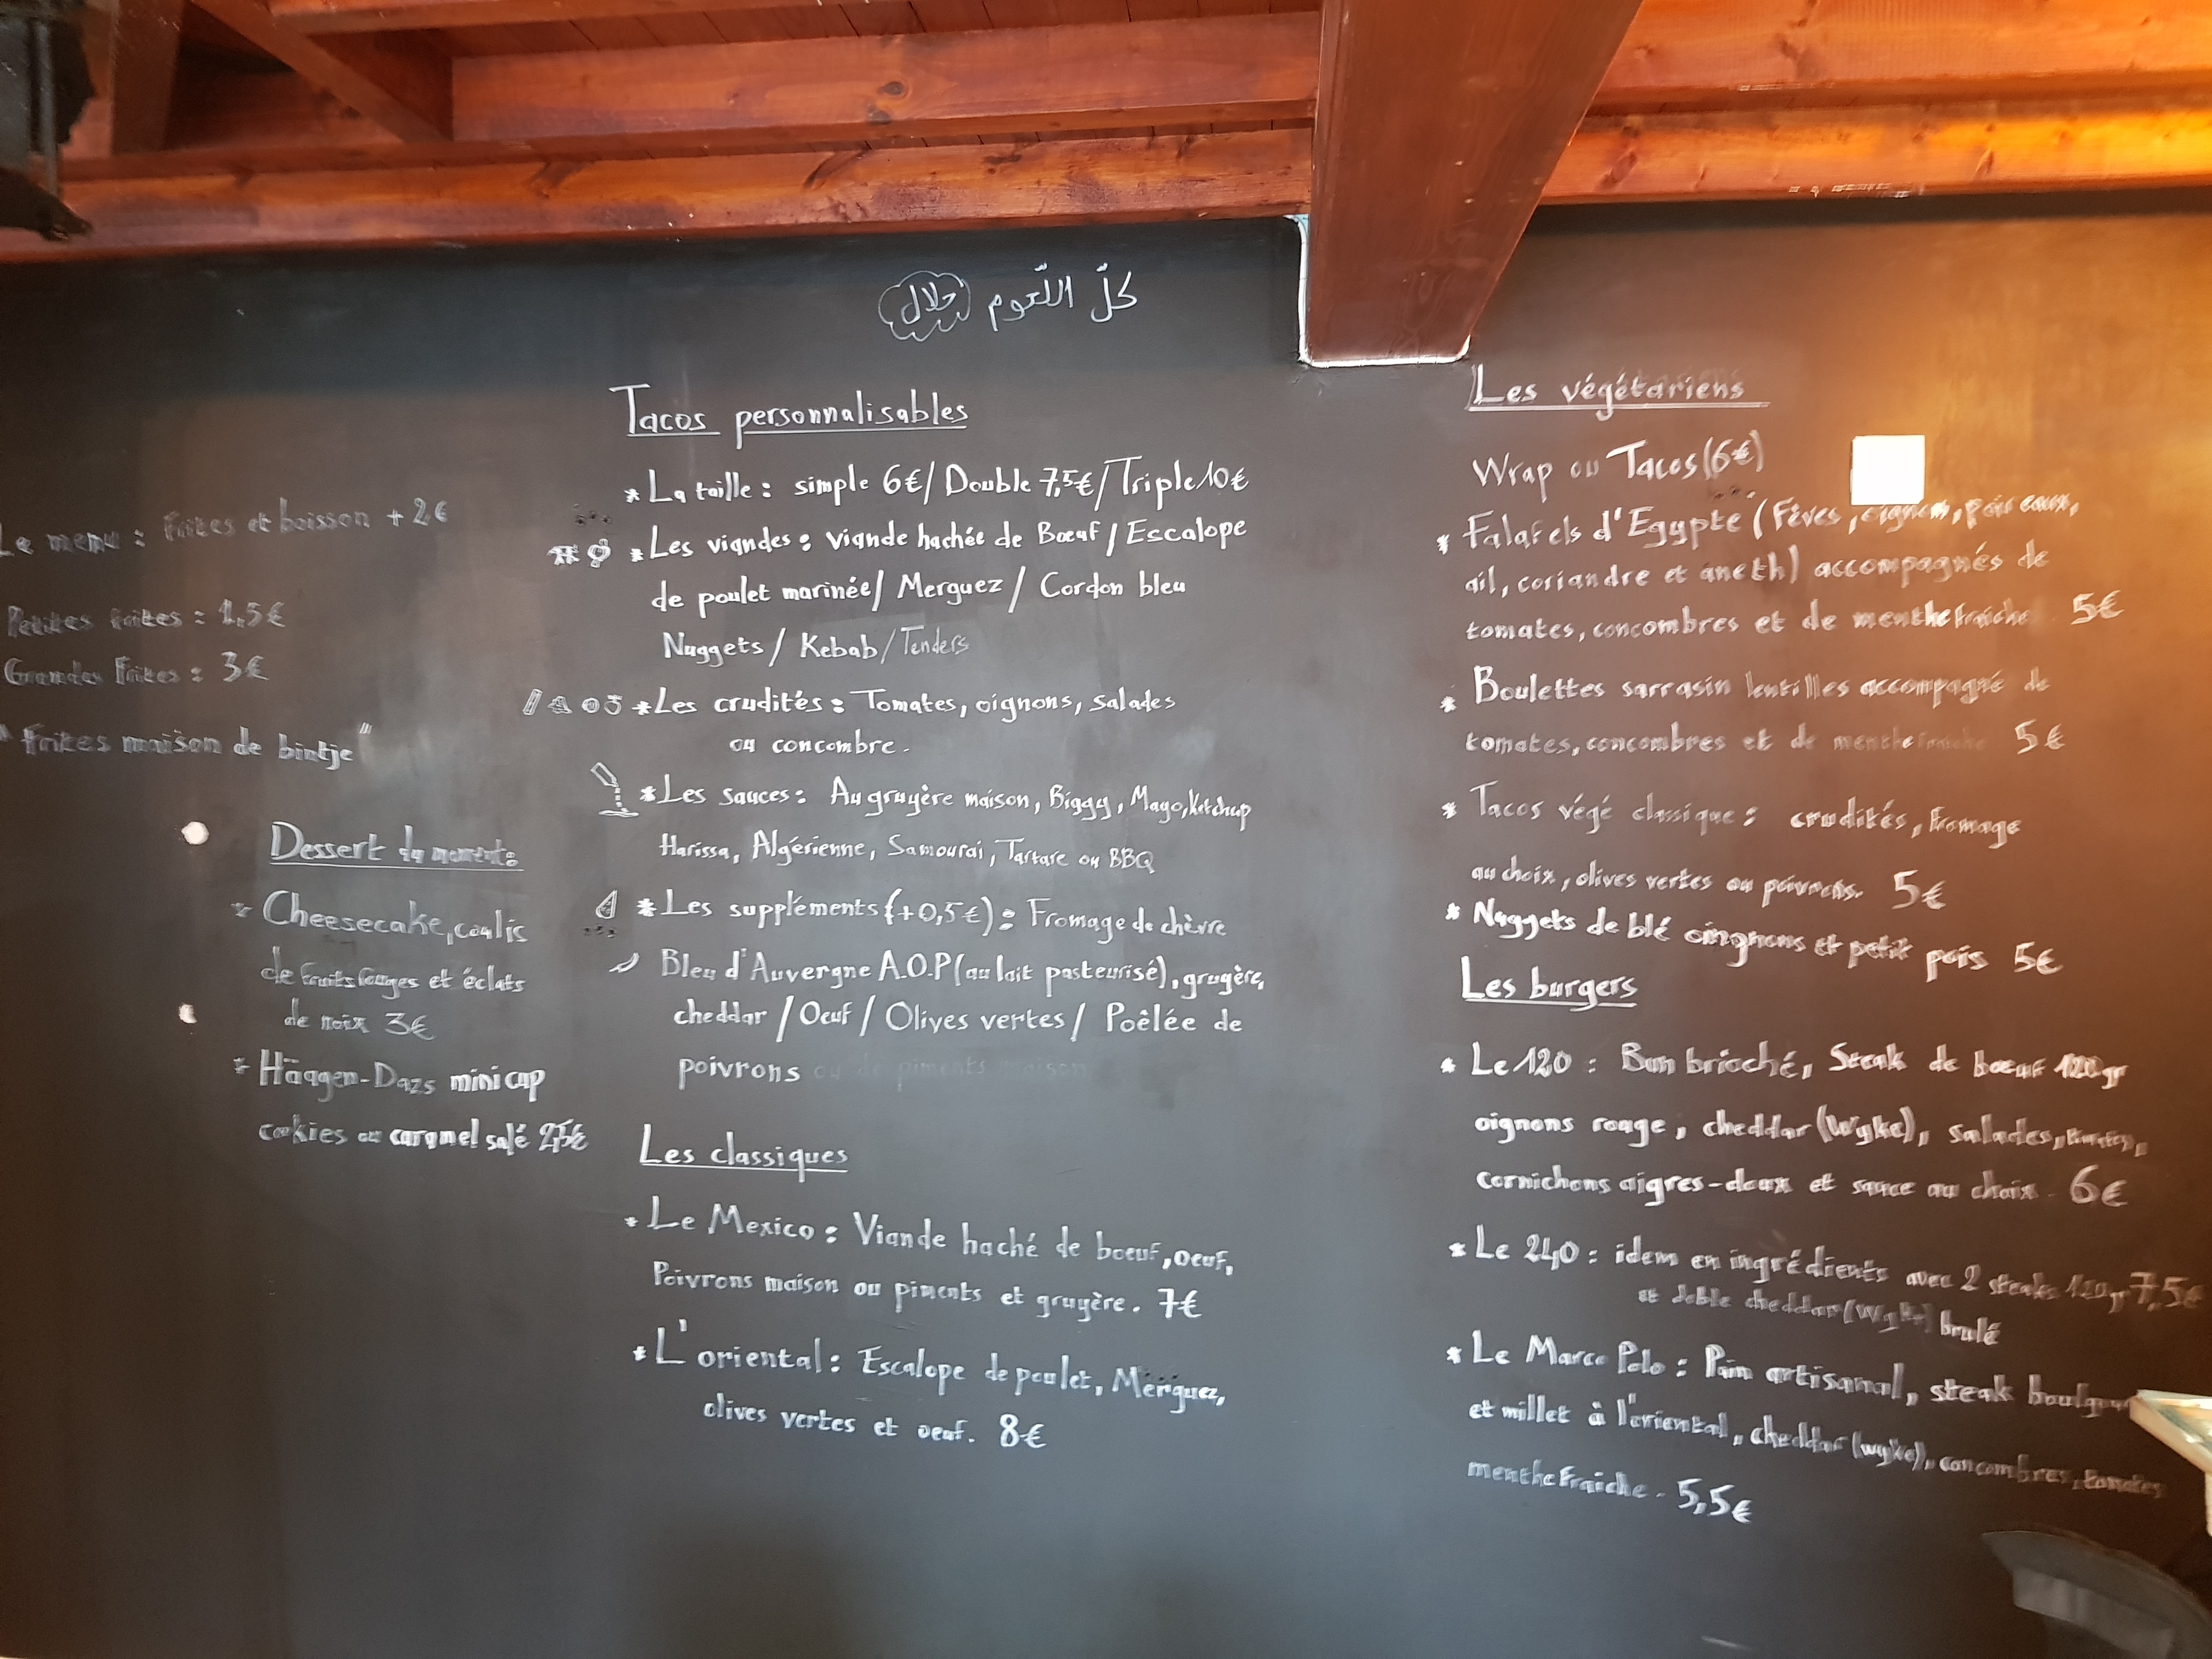 كلّ اللّحوم حلال
Le menu : Frites et boisson + 2€
Petites frites : 1,5€
Grandes Frites : 3€
" Frites maison de bintje "
Dessert du moment :
* Cheesecake, coulis
de fruits rouges et éclats
de noix 3€
* Häagen-Dazs mini cup
cookies ou caramel salé 2,5€
Tacos personnalisables
* La taille : simple 6€/ Double 7,5€/Triple 10€
* Les viandes : viande hachée de Bœuf / Escalope
de poulet marinée/ Merguez / Cordon bleu
Nuggets / Kebab / Tenders
* Les crudités : Tomates, oignons, salades
ou concombre.
* Les sauces : Au gruyère maison, Biggy, Mayo, Ketchup
Harissa, Algérienne, Samouraï, Tartare ou BBQ
* Les suppléments (+0,5€) : Fromage de chèvre
Bleu d'Auvergne A.O.P (au lait pasteurisé), gruyère,
cheddar / Oeuf / Olives vertes / Poêlée de
poivrons ou de piments maison
Les classiques
* Le Mexico : Viande haché de boeuf, oeuf,
Poivrons maison ou piments et gruyère. 7€
* L'oriental : Escalope de poulet, Merguez,
olives vertes et oeuf. 8€
Les végétariens
Wrap ou Tacos (6€)
* Falafels d'Egypte (Fèves, oignons, poireaux,
ail, coriandre et aneth) accompagnés de
tomates, concombres et de menthe fraîche 5€
* Boulettes sarrasin lentilles accompagné de
tomates, concombres et de menthe fraiche 5€
* Tacos végé classique : crudités, fromage
au choix, olives vertes ou poivrons. 5€
* Nuggets de blé oingnons et petit pois 5€
Les burgers
* Le 120 : Bun brioché, Steak de bœuf 120gr
oignons rouge, cheddar (Wyke), salades, tomates,
cornichons aigres-doux et sauce au choix. 6€
* Le 240 : idem en ingrédients avec 2 steaks 120gr 7,5€
et doble cheddar (Wyke) brulé
* Le Marco Polo : Pain artisanal, steak
et millet à l'oriental, cheddar (wyke), concombres, tomates
menthe fraiche. 5,5€